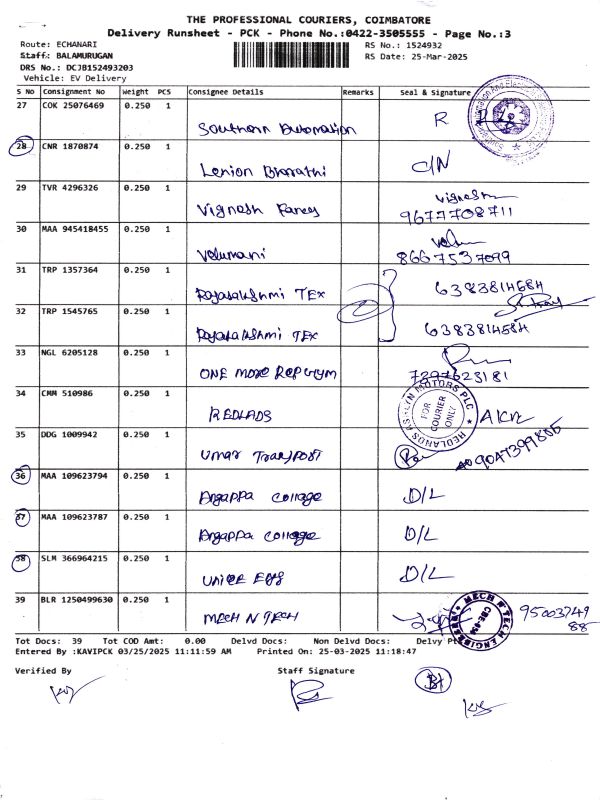 THE PROFESSIONAL COURIERS, COIMBATORE
Delivery Runsheet - PCK - Phone No.:0422-3505555 - Page No.:3
Route: ECHANARI RS No.: 1524932
Staff: BALAMURUGAN RS Date: 25-Mar-2025
DRS No.: DCJB152493203
Vehicle: EV Delivery
S No Consignment No Weight PCS Consignee Details Remarks Seal & Signature
27 COK 25076469 0.250 1 Southern Automation R
28 CNR 1870874 0.250 1 Lenion Bharathi C/N
29 TVR 4296326 0.250 1 Vignesh Fancy Vignesh 9677708711
30 MAA 945418455 0.250 1 Velumani 8667537099
31 TRP 1357364 0.250 1 Rajasalakshmi TEX 6383814684
32 TRP 1545765 0.250 1 Rajasalakshmi TEX 6383814684
33 NGL 6205128 0.250 1 ONE MORE REP GYM 7297623181
34 CMM 510986 0.250 1 REDLADS FOR COURIER ONLY
35 DDG 1009942 0.250 1 Umar Transport 9047399805
36 MAA 109623794 0.250 1 Angappa College D/L
37 MAA 109623787 0.250 1 Angappa College D/L
38 SLM 366964215 0.250 1 UNIQE ENG D/L
39 BLR 1250499630 0.250 1 MECH N TECH MECH N TECH ENGINEERS 9500374988
Tot Docs: 39 Tot COD Amt: 0.00 Delvd Docs: Non Delvd Docs: Delvy
Entered By :KAVIPCK 03/25/2025 11:11:59 AM Printed On: 25-03-2025 11:18:47
Verified By Staff Signature